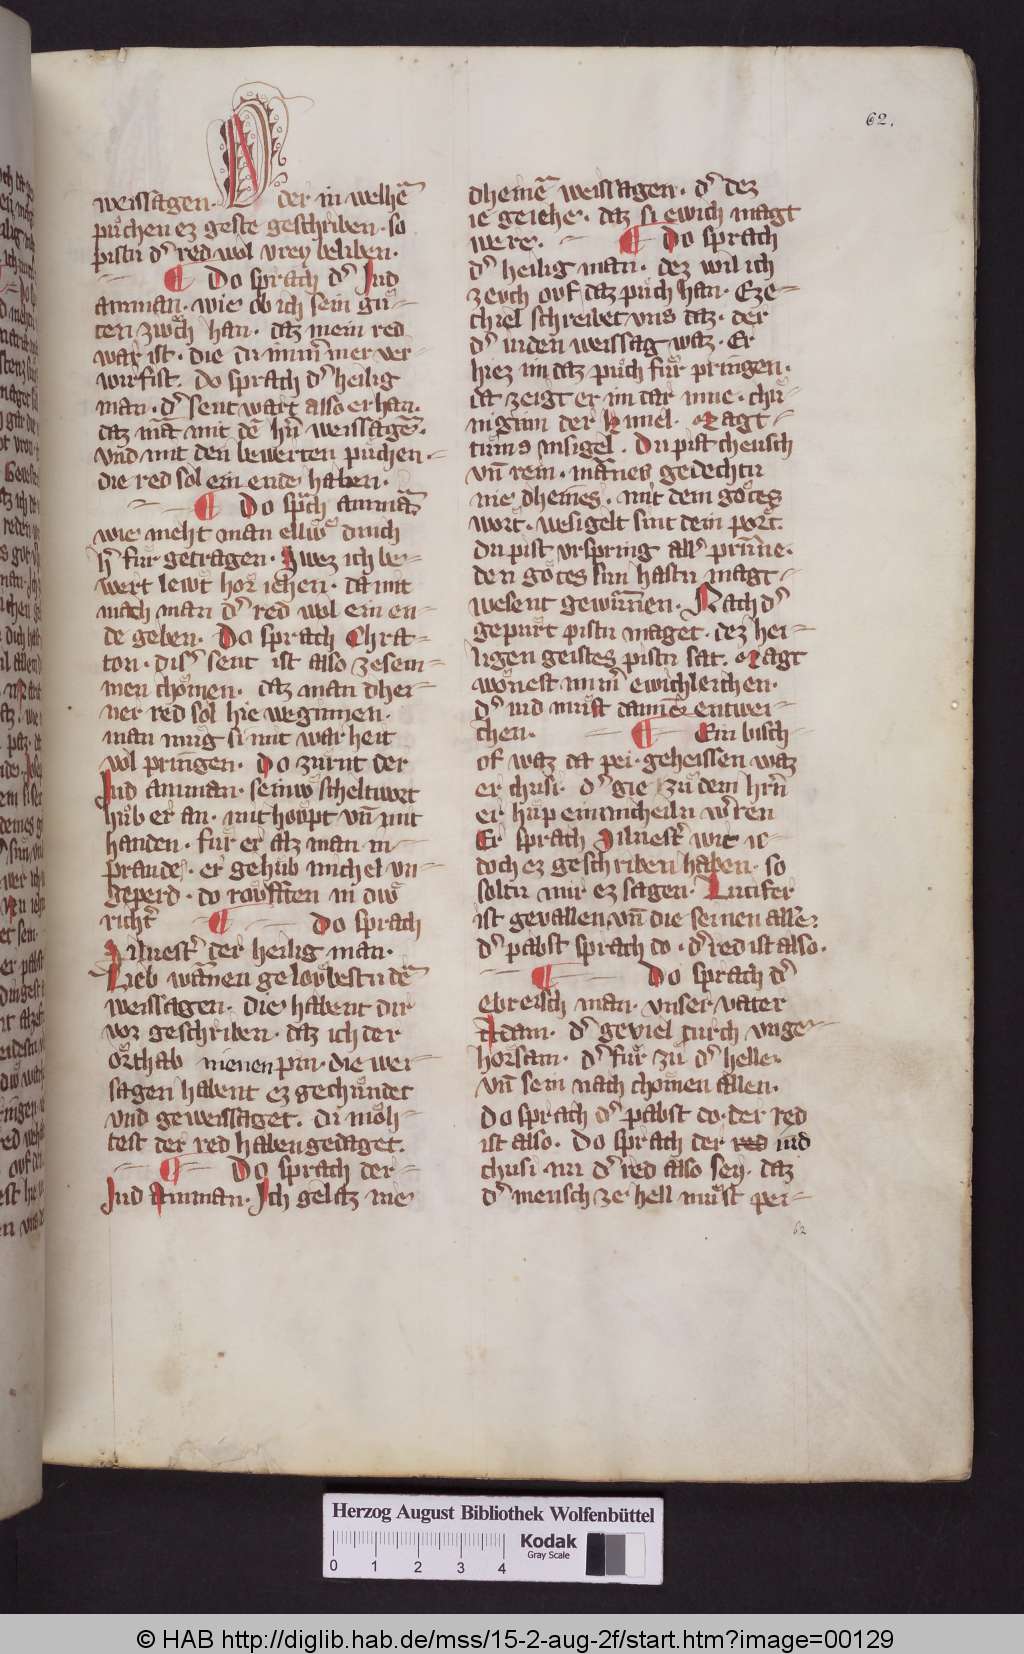 62.
weissagen. Oder in welhē
půchen ez geste geschriben. so
pistu dˢ red wol vrey beliben.
¶ Do sprach dˢ Jud
amman. wie ob ich sein gů-
ten zwoͤh han. daz mein red
war ist. die du nimmer ver-
wirfist. Do sprach dˢ heilig
man. dˢ sent wart also erhan.
daz mā mit dē hrn̄ weissagē.
vnd mit den bewerten puͤchen.
die red sol ein ende haben.
¶ Do sprach ammā
wie meht man elliw druch
fuͤr getragen. Swez ich be-
wert lewt hor iehen. da mit
mach man dˢ red wol ein en-
de geben. Do sprach Chra-
ton. disˢ sent ist also zesem-
men choͤmen. daz man dhei-
ner red sol hie weginnen.
man mug si mit warheit
vol pringen. do zurnt der
Jud amman. seiniw scheltwort
huͦb er an. mit houpt vn̄ mit
handen. fuͤr er alz man in
prande. er gehub michel vn
geperd. do rouften in diw
richtˢ ¶ Do sprach
Siluestˢ der heilig man.
Lieb wānen geloubestu dē
weissagen. die habent dir
vor geschriben. daz ich der
orthab nienen pin. die wei-
sagen habent ez gechuͤndet
vnd geweissaget. du moͤh-
test der red haben gedaget.
¶ Do sprach der
Jud Amman. Ich gelaz nie
dheinē weissagen. dˢ dez
ie geiehe. daz si ewich magt
were. ¶ Do sprach
dˢ heilig man. dez wil ich
zevch ouf daz puͤch han. Eze-
chiel schreibet vns daz. der
dˢ iuden weissag waz. Er
hiez im daz puͦch fuͤr pringen.
da zeigt er im dar inne. chuͤ-
niginn der himel. Magt-
tums insigel. Du pist cheusch
vn̄ rein. mānes gedechtu
nie dheines. mit dem gotes
wort. vesigelt sint dein port.
du pist vrspring allˢ prunne.
den gotes sun hastu magt-
wesent gewunnen. Nach dˢ
gepurt pistu maget. dez hei-
ligen geistes pistu sat. Magt
wonest nimˢ ewichleichen.
dˢ iud must dannē entwei-
chen. ¶ Ein bisch-
of waz da pei. geheissen waz
er chusi. dˢ gie zu dem hrn̄
er huͤp ein micheilu wˢren
Er sprach Siluestˢ wit ie-
doch ez geschriben haben. so
soltu mir ez sagen. Lucifer
ist gevallen. vn̄ die seinen allē.
dˢ pabst sprach do. dˢ red ist also.
¶ Do sprach dˢ
ebreisch man. vnser vater
Adam. dˢ geviel durch vnge-
horsam. dˢ fuͤr zu dˢ helle.
vn̄ sein nach chomen allen.
Do sprach dˢ pabst do. der red
ist also. Do sprach der red iud
chusi. nu dˢ red also sey. daz
dˢ mensch ze hell muͤst pei-
62
Herzog August Bibliothek Wolfenbüttel
0 1 2 3 4
Kodak
Gray Scale
© HAB http://diglib.hab.de/mss/15-2-aug-2f/start.htm?image=00129